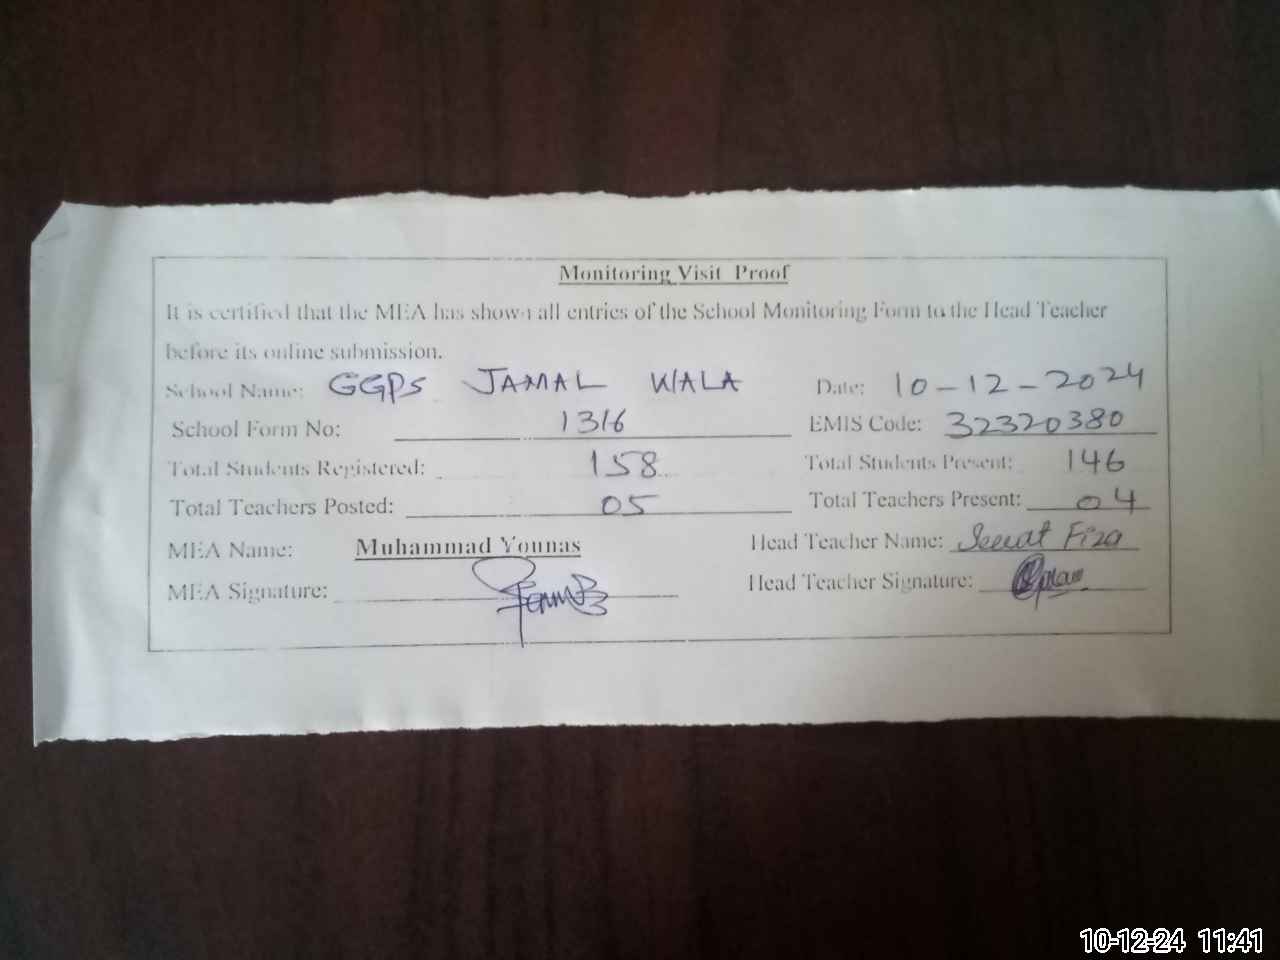 Monitoring Visit Proof
It is certified that the MEA has shown all entries of the School Monitoring Form to the Head Teacher
before its online submission.
School Name: GGPS JAMAL WALA Date: 10-12-2024
School Form No: 1316 EMIS Code: 32320380
Total Students Registered: 158 Total Students Present: 146
Total Teachers Posted: 05 Total Teachers Present: 04
MEA Name: Muhammad Younas Head Teacher Name: Fiza
MEA Signature: Head Teacher Signature:
10-12-24 11:41